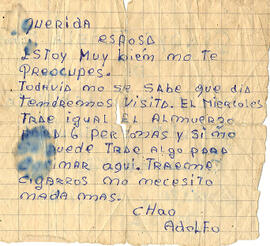 Querida
esposa
Estoy muy bien mo te
preocupes.
Todavia mo se sabe que dia
temdremos visita. El miercoles
trae igual el almuerzo
6 persomas y si mo
puede trae algo para
aqui. Traeme
cigarros mo mecesito
mada mas.
Chao
Adolfo